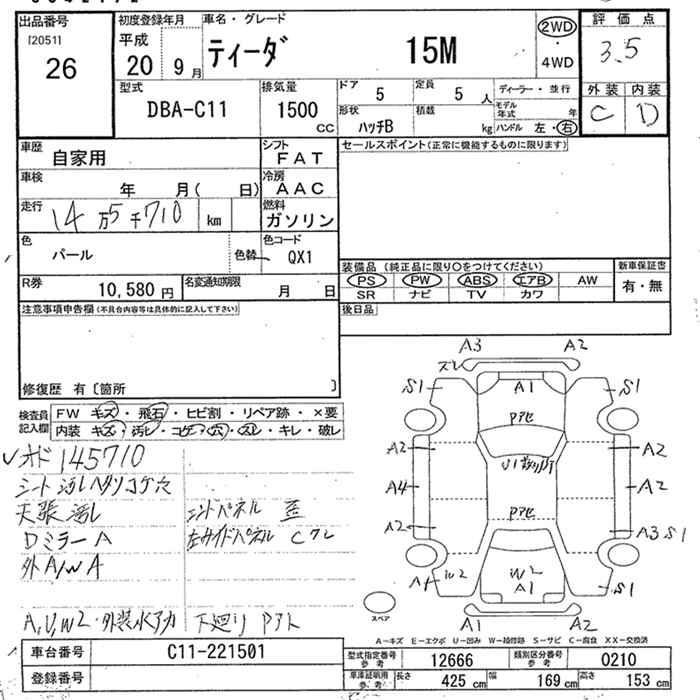 出品番号
[2051]
26
初度登録年月
平成
20 9 月
車名・グレード
ティーダ 15M
2WD
・
4WD
評価点
3.5
外装 内装
C D
型式
DBA-C11
排気量
1500 CC
ドア 5
定員 5 人
ディーラー・並行
モデル年式 年
形状 ハッチB
積載 kg
ハンドル 左・右
車歴
自家用
シフト
FAT
セールスポイント(正常に機能するものに限ります)
車検 年 月( 日)
冷房
AAC
走行 14万5千710 km
燃料
ガソリン
色
パール
色替
色コード
QX1
装備品 (純正品に限り○をつけてください)
新車保証書
PS PW ABS エアB AW
有・無
SR ナビ TV カワ
R券
10,580 円
名変通知期限
月 日
注意事項申告欄(不具合内容等は具体的に記入して下さい)
後日品
修復歴 有〔箇所 〕
検査員
記入欄
FW キズ・飛石・ヒビ割・リペア跡・×要
内装 キズ・汚レ・コゲ・穴・スレ・キレ・破レ
A3 A2
ズレ
S1 A1 S1
Pアセ
U1
A2 A2
A4 A2
Pアセ
A2 A3 S1
A1 W2 W2 S1
A1
A1 A2
スペア
145710
シート汚レヘタリコゲ穴
天張汚レ
エンドパネル 歪
DミラーA
左サイドパネル Cクレ
外A/WA
A,U,W2・外装水アカ 下廻り Pアト
A―キズ E―エクボ U―凹み W―補修跡 S―サビ C―腐食 XX―交換済
車台番号 C11-221501
登録番号
型式指定番号
参考
12666
類別区分番号
参考
0210
車庫証明用
参考
長さ 425 cm 幅 169 cm 高さ 153 cm